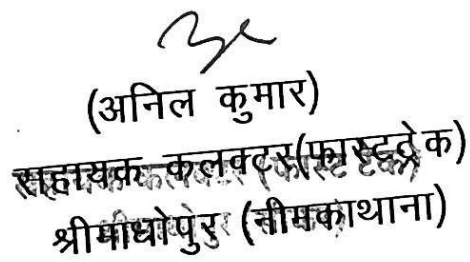 (अनिल कुमार)
सहायक कलक्टर(फास्टट्रेक)
श्रीमाधोपुर (नीमकाथाना)